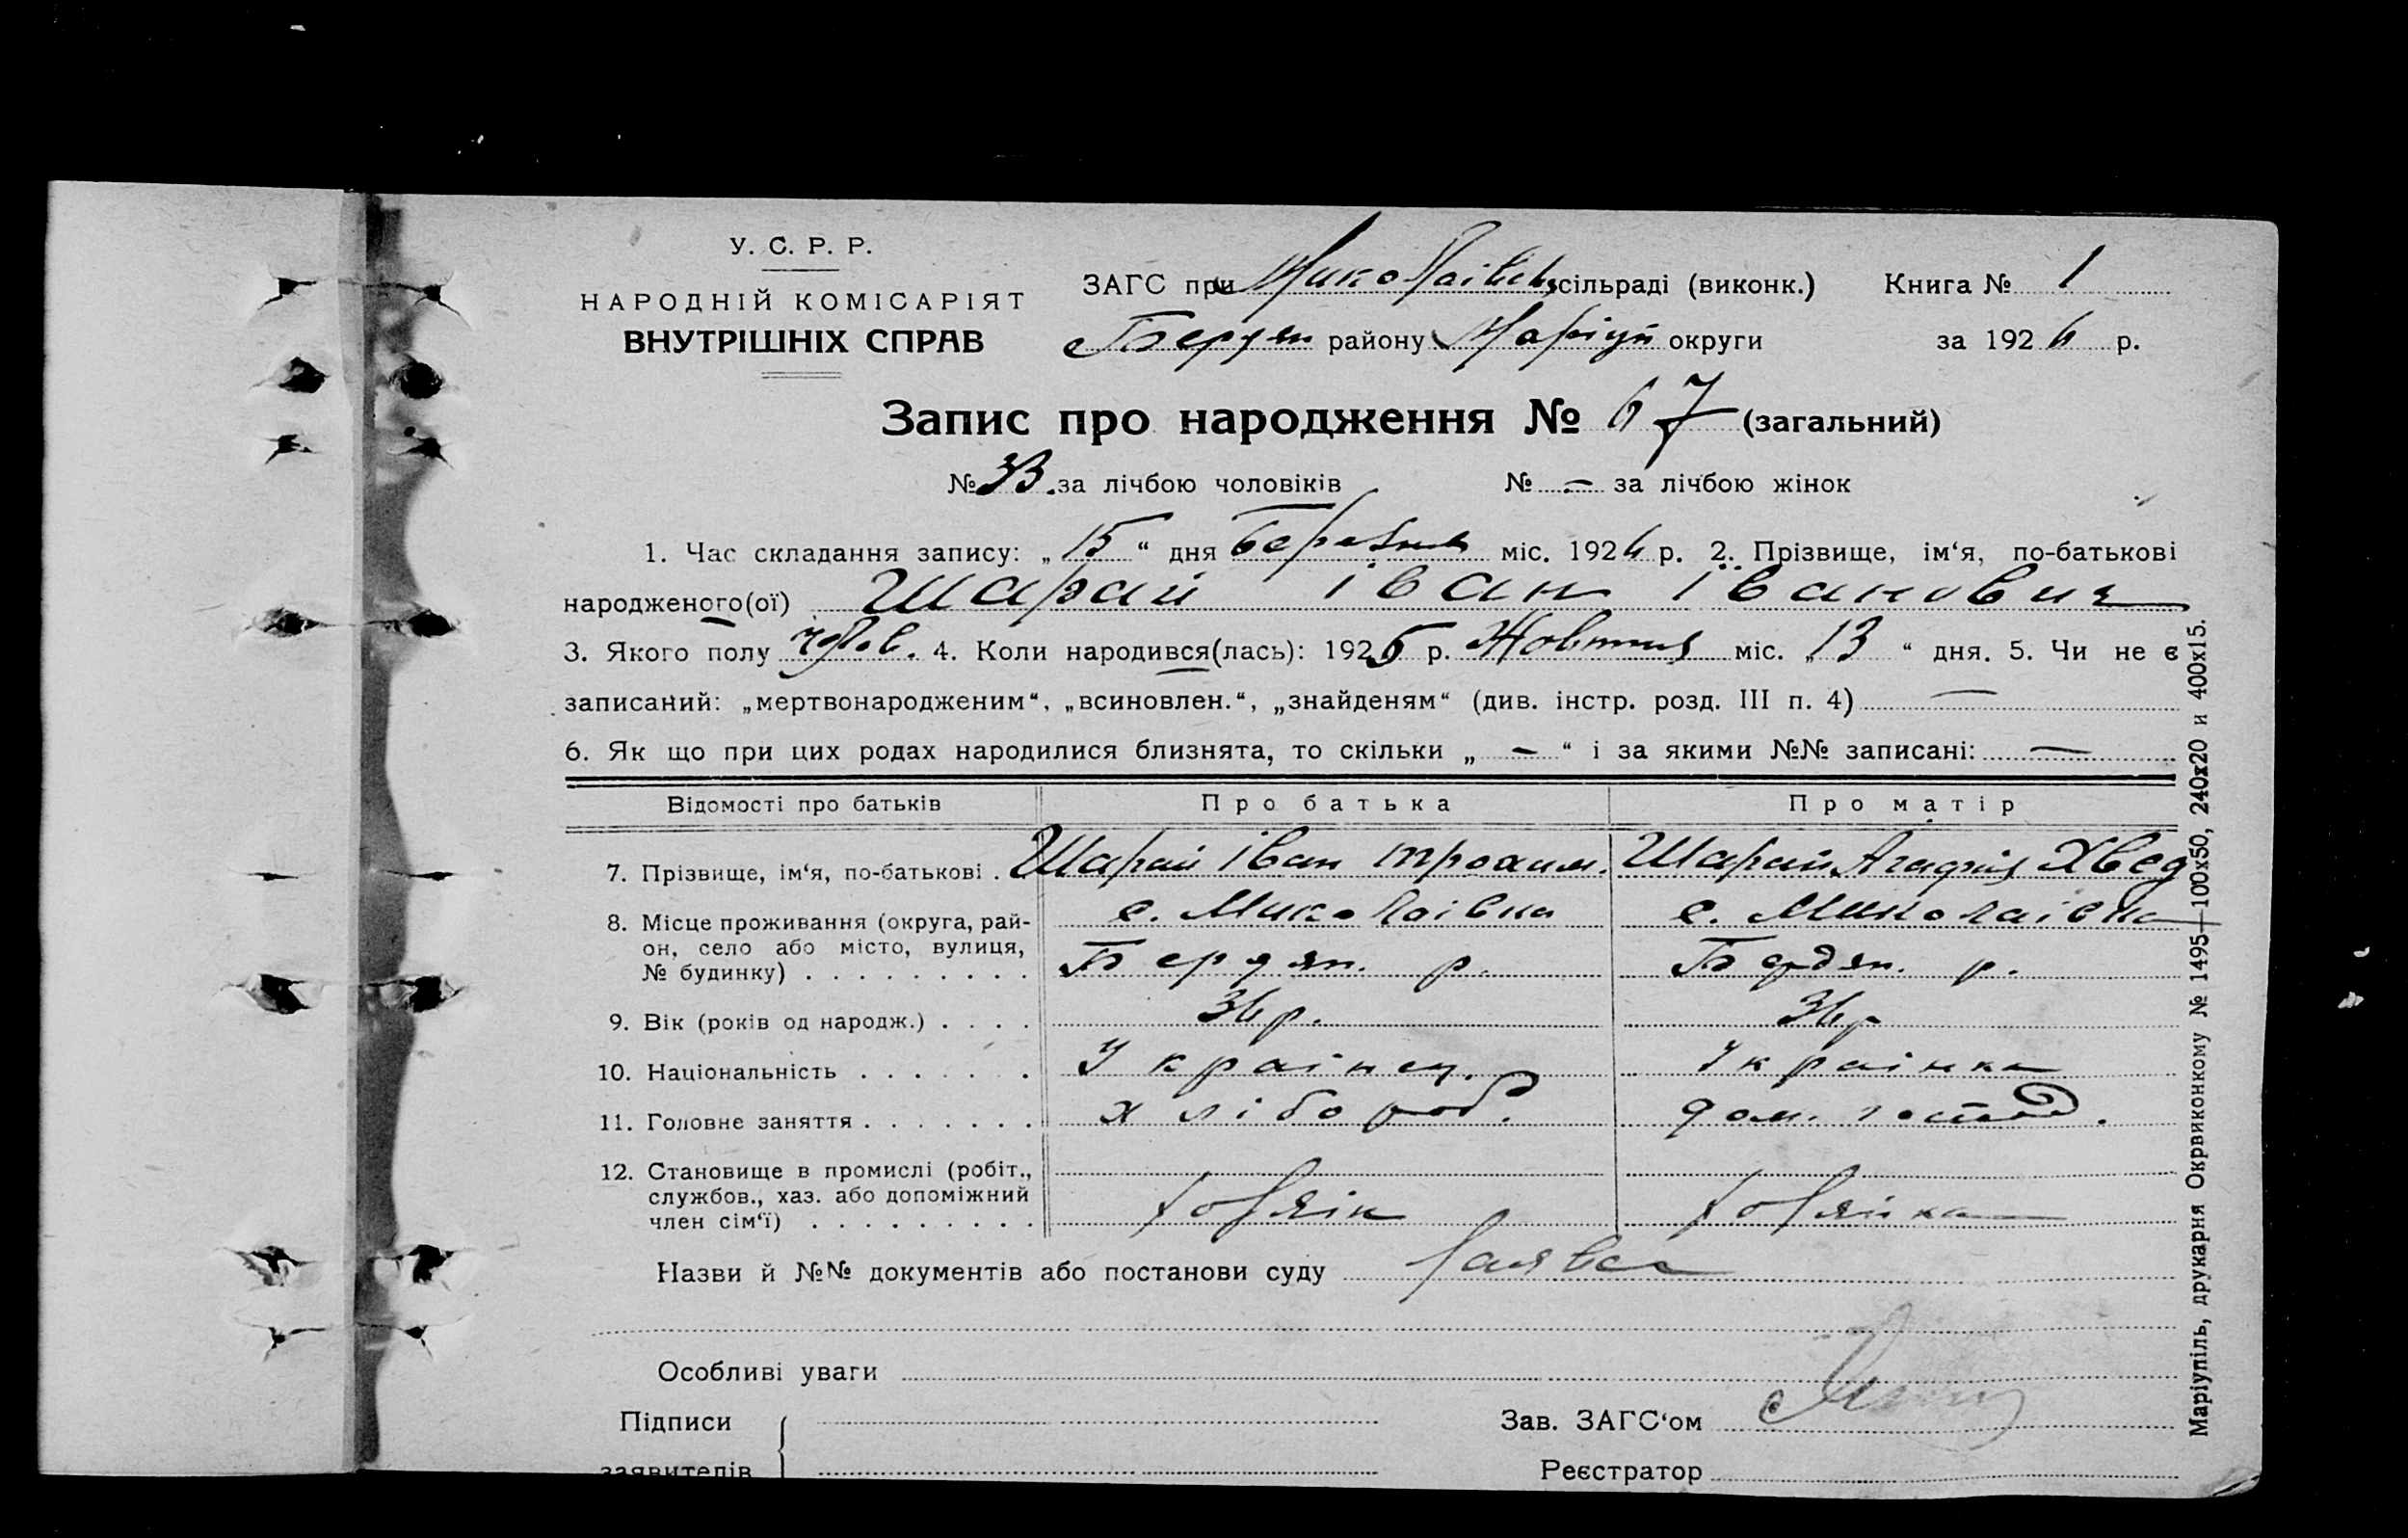 У. С. Р. Р.
НАРОДНІЙ КОМІСАРІЯТ
ВНУТРІШНІХ СПРАВ
ЗАГС при Миколаївськ сільраді (виконк.) Книга № 1
Бердян району Маріуп округи за 1926 р.
Запис про народження № 67 (загальний)
№ 33 за лічбою чоловіків № — за лічбою жінок
1. Час складання запису: „ 15 “ дня березня міс. 1926 р. 2. Прізвище, ім‘я, по-батькові
народженого(ої) Шарай Іван Іванович
3. Якого полу чолов. 4. Коли народився(лась): 1925 р. Жовтня міс. „ 13 “ дня. 5. Чи не є
записаний: „мертвонародженим“, „всиновлен.“, „знайденям“ (див. інстр. розд. III п. 4) —
6. Як що при цих родах народилися близнята, то скільки „ — “ і за якими №№ записані: —
Відомості про батьків Про батька Про матір
7. Прізвище, ім‘я, по-батькові . Шарай Іван Трохим. Шарай Агафія Хвед
8. Місце проживання (округа, рай- с. Миколаівка с. Миколаівка
он, село або місто, вулиця,
№ будинку) . . . . . . . . . Бердян. р. Бердян. р.
9. Вік (років од народж.) . . . . 36 р. 36 р
10. Національність . . . . . . . Украінец. Украінка
11. Головне заняття . . . . . . . хлібороб. дом. господ.
12. Становище в промислі (робіт.,
службов., хаз. або допоміжний
член сім‘ї) . . . . . . . . .
Назви й №№ документів або постанови суду Заявка
Особливі уваги
Підписи Зав. ЗАГС‘ом
заявителів Реєстратор
Маріупіль, друкарня Окрвиконкому № 1495—100х50, 240х20 и 400х15.